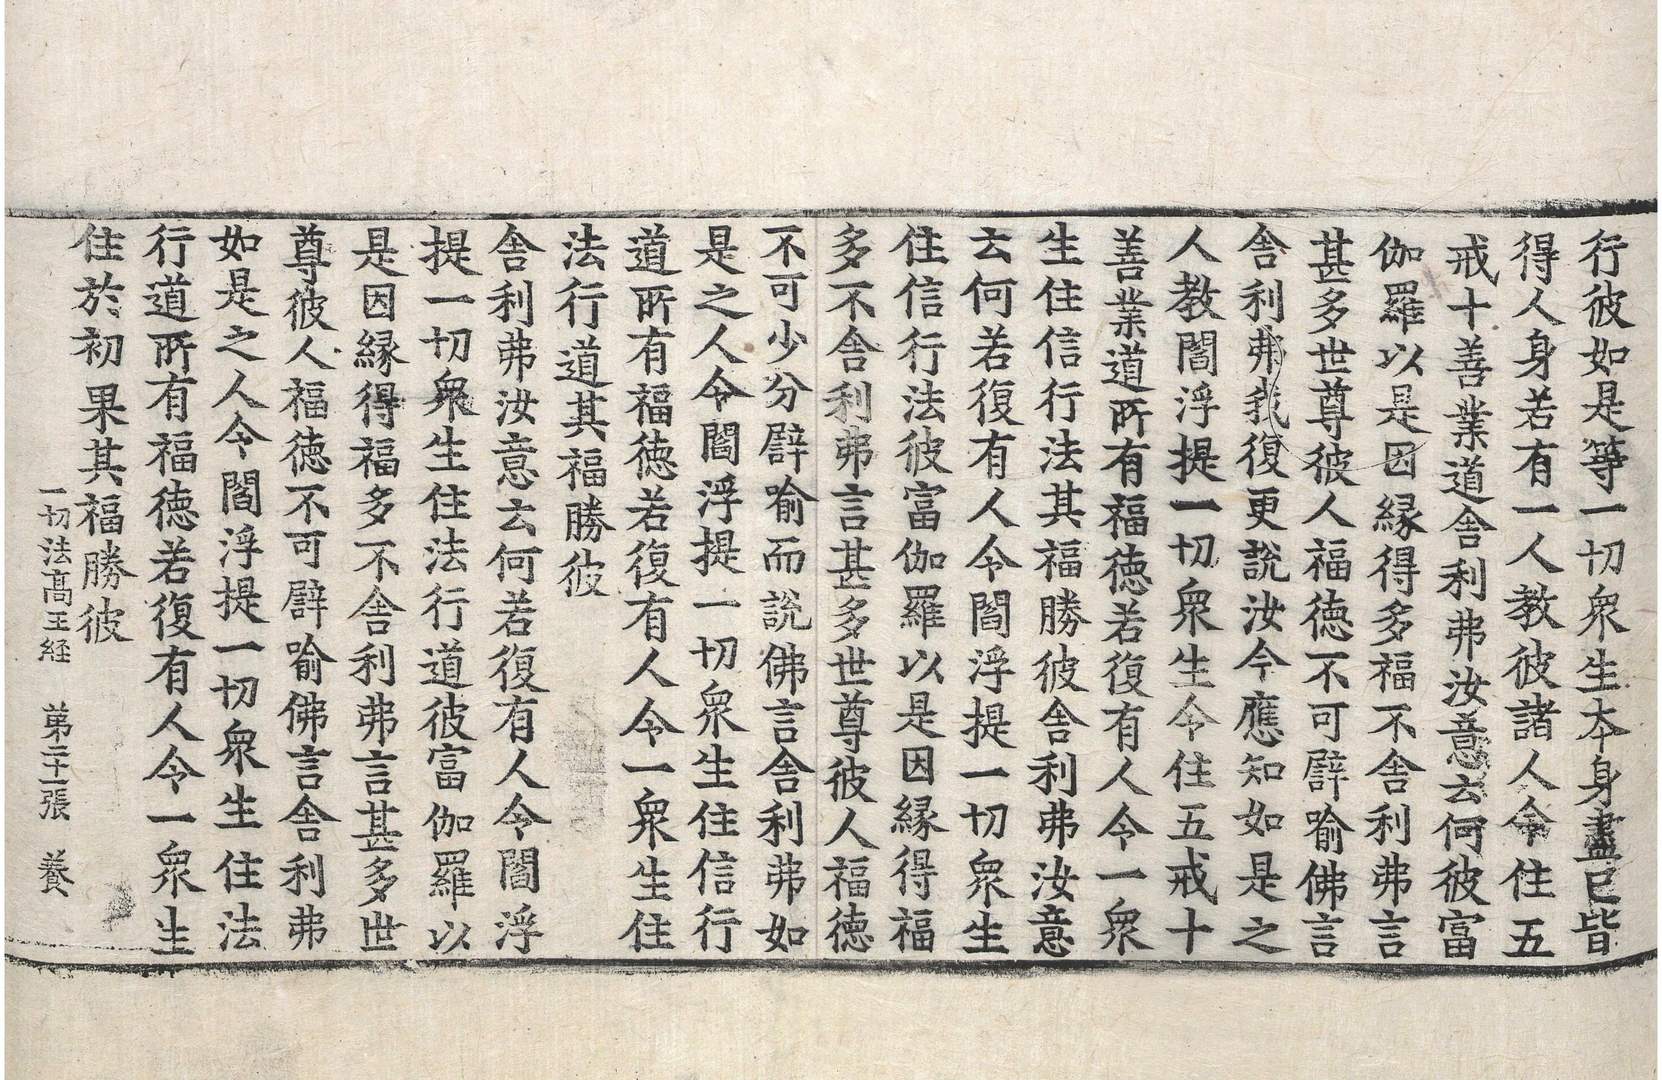 行彼如是等一切衆生本身盡已皆
得人身若有一人教彼諸人令住五
戒十善業道舎利弗汝意云何彼富
伽羅以是因緣得多福不舎利弗言
甚多世尊彼人福德不可譬喻佛言
舎利弗我復更說汝今應知如是之
人教閻浮提一切衆生令住五戒十
善業道所有福德若復有人令一衆
生住信行法其福勝彼舎利弗汝意
云何若復有人令閻浮提一切衆生
住信行法彼富伽羅以是因緣得福
多不舎利弗言甚多世尊彼人福德
不可少分譬喻而說佛言舎利弗如
是之人令閻浮提一切衆生住信行
道所有福德若復有人令一衆生住
法行道其福勝彼
舎利弗汝意云何若復有人令閻浮
提一切衆生住法行道彼富伽羅以
是因緣得福多不舎利弗言甚多世
尊彼人福德不可譬喻佛言舎利弗
如是之人令閻浮提一切衆生住法
行道所有福德若復有人令一衆生
住於初果其福勝彼
一切法高王経　第二十一張　養